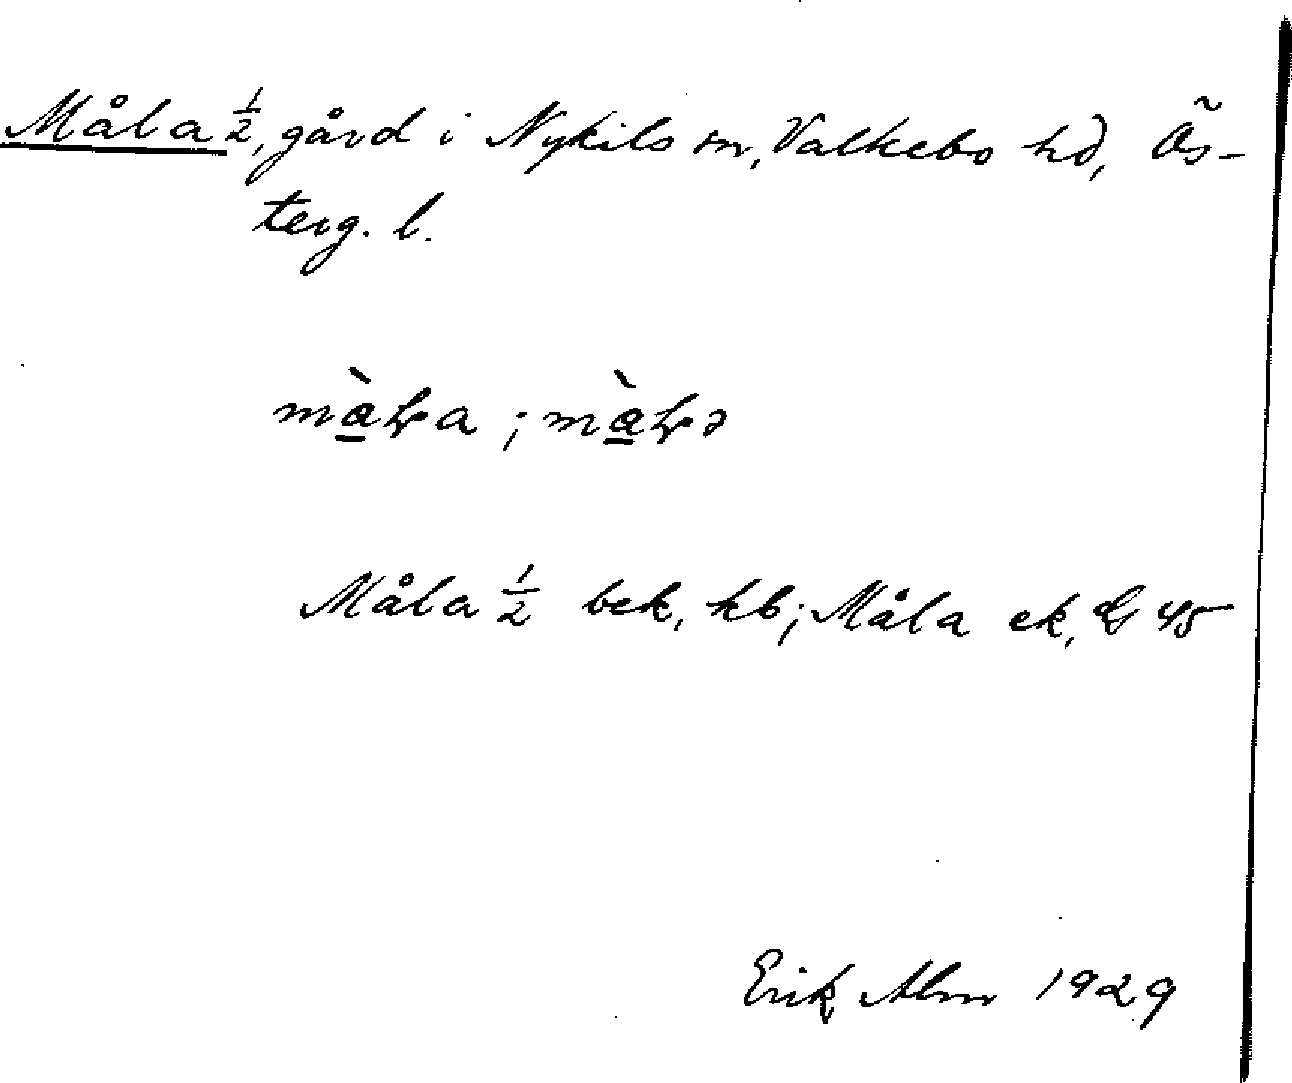 Måla ½, gård i Nykils sn, Valkebo hd, Ös-
terg. l.
màⱡa ; màⱡə
Måla ½ bek, kb; Måla ek, G 45
Erik Alm 1929